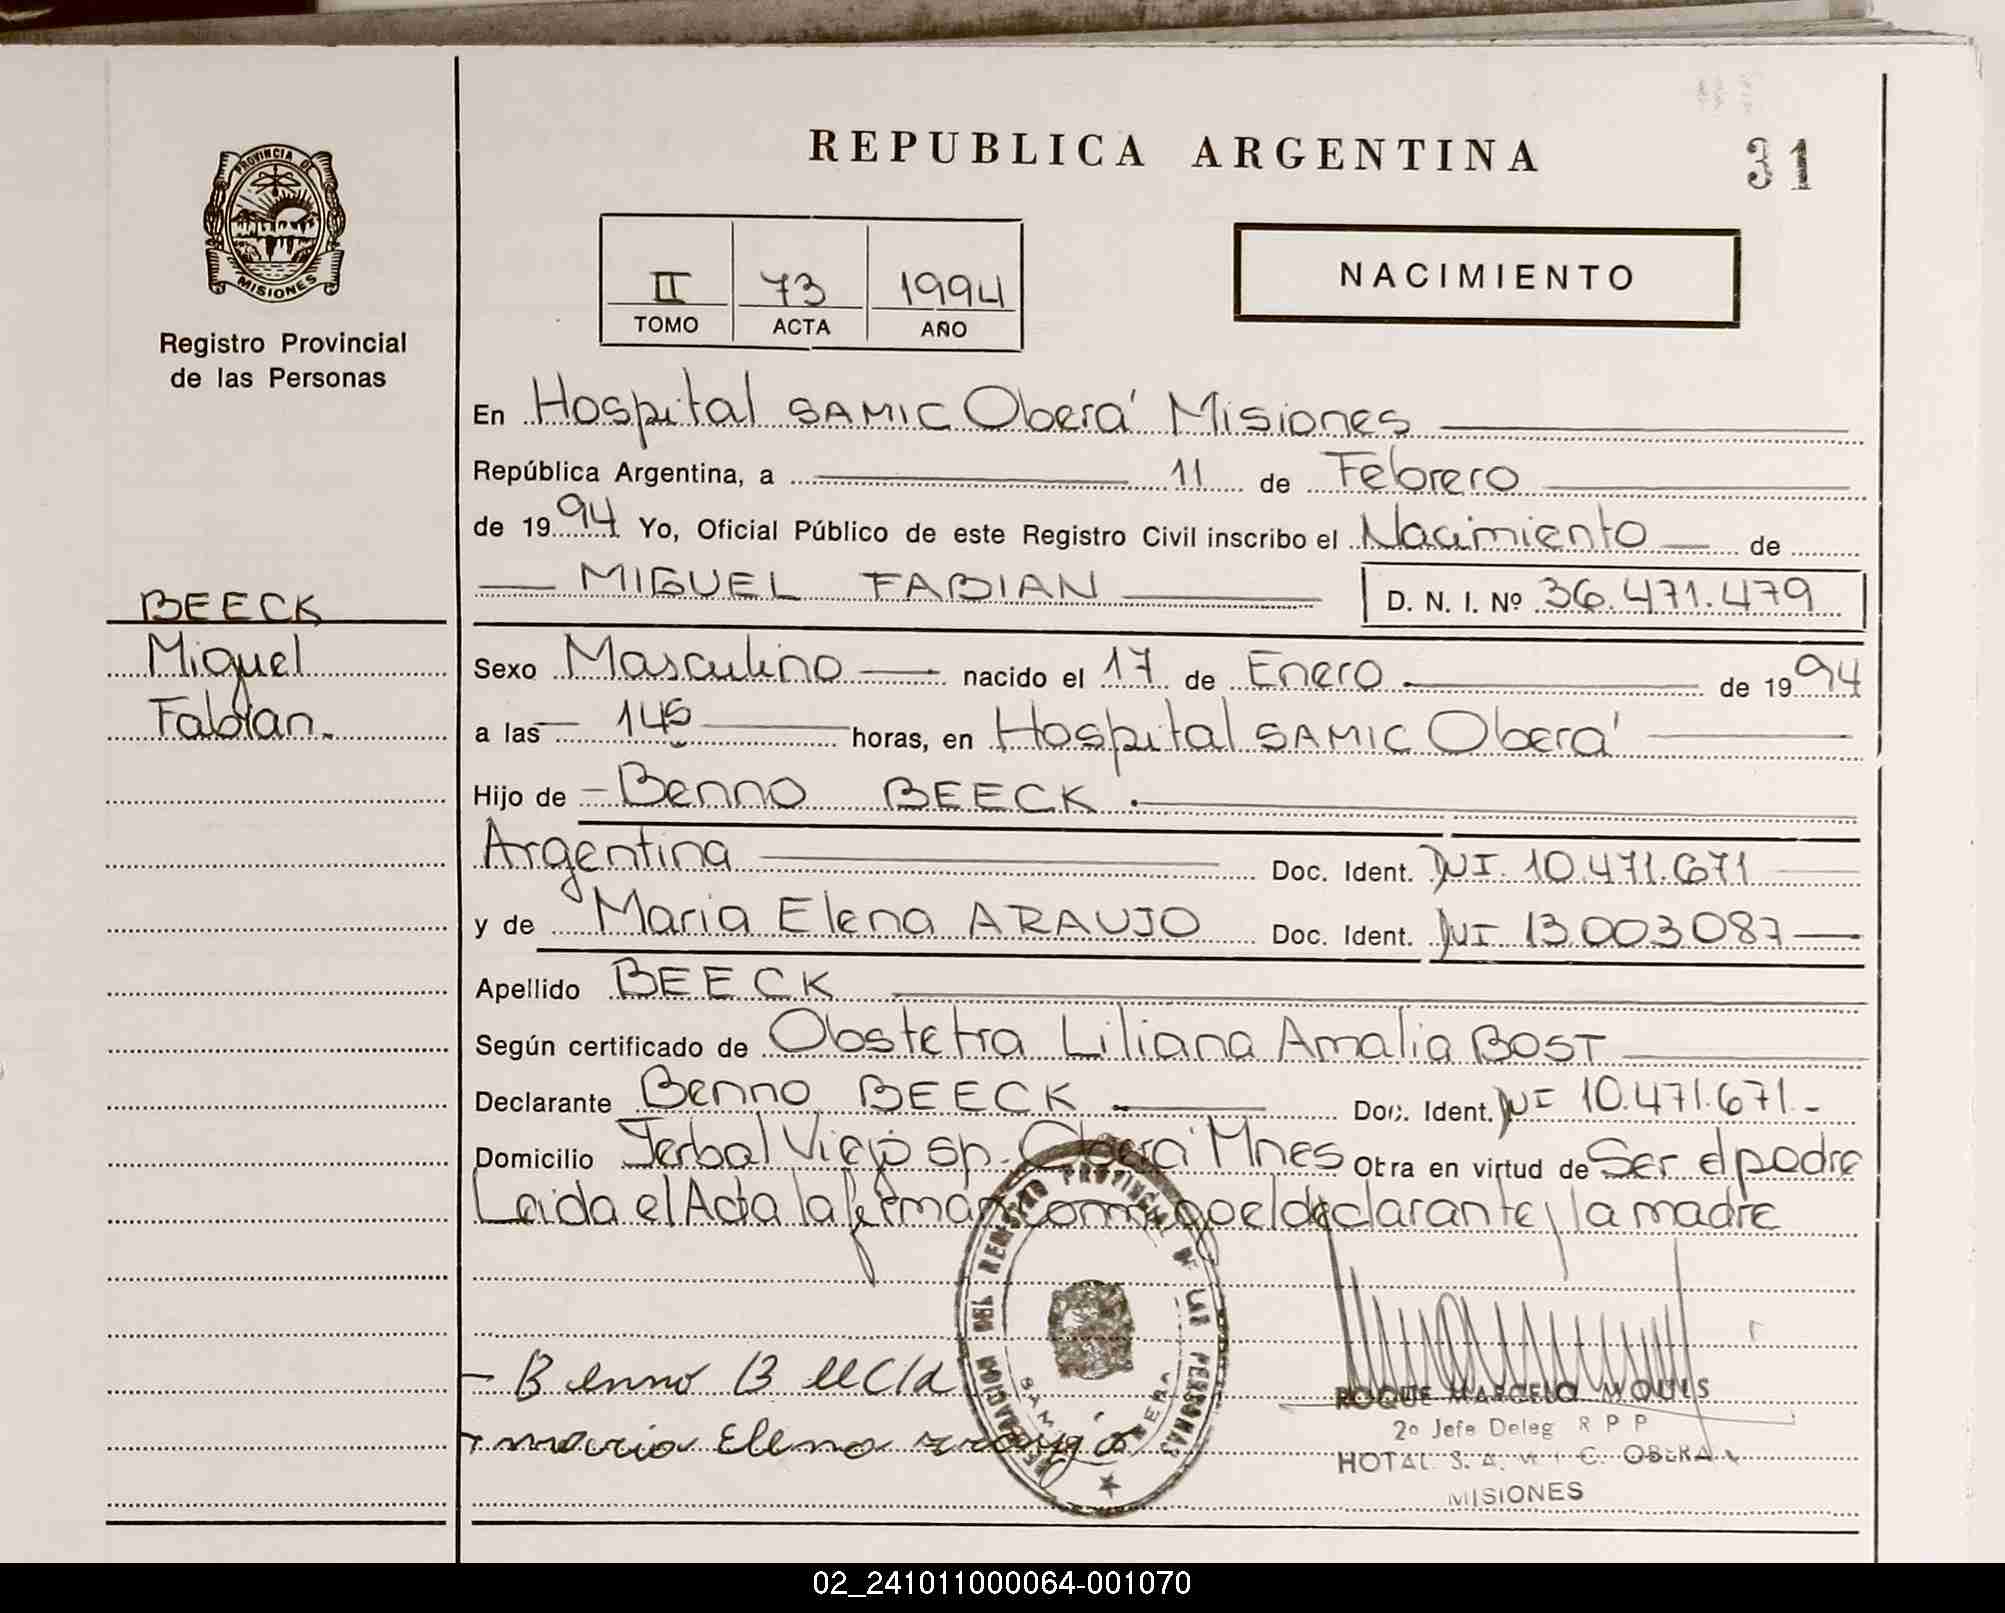 REPUBLICA ARGENTINA
31
PROVINCIA DE
MISIONES
Registro Provincial
de las Personas
II 73 1994
TOMO ACTA AÑO
NACIMIENTO
En Hospital SAMIC Oberá Misiones
República Argentina, a 11 de Febrero
de 1994 Yo, Oficial Público de este Registro Civil inscribo el Nacimiento de
MIGUEL FABIAN D. N. I. Nº 36.471.479
BEECK
Miguel
Fabian.
Sexo Masculino nacido el 17 de Enero de 1994
a las 145 horas, en Hospital SAMIC Oberá
Hijo de Benno BEECK
Argentina Doc. Ident. DNI. 10.471.671
y de Maria Elena ARAUJO Doc. Ident. DNI 13.003.087
Apellido BEECK
Según certificado de Obstetra Liliana Amalia BOST
Declarante Benno BEECK Doc. Ident. DNI 10.471.671.-
Domicilio Yerbal Viejo sp. Oberá Mnes Otra en virtud de Ser el padre
Leida el Acta la firman conmigo el declarante y la madre
DELEGACION DEL REGISTRO PROVINCIAL DE LAS PERSONAS
Benno Beeck
maria Elena araujo
ROQUE MARCELO
2º Jefe Deleg R P P
HOTAL S. A. M I C. OBERA
MISIONES
02_241011000064-001070